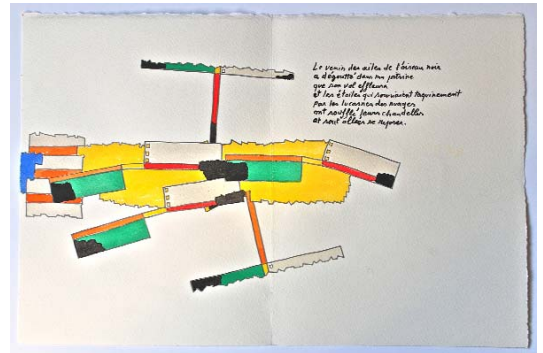 Le venin des ailes de l'oiseau noir
a dégoutté dans ma poitrine
que son vol effleura
et les étoiles qui souriaient taquinement
par les lucarnes des nuages
ont soufflé leurs chandelles
et sont allées se reposer.